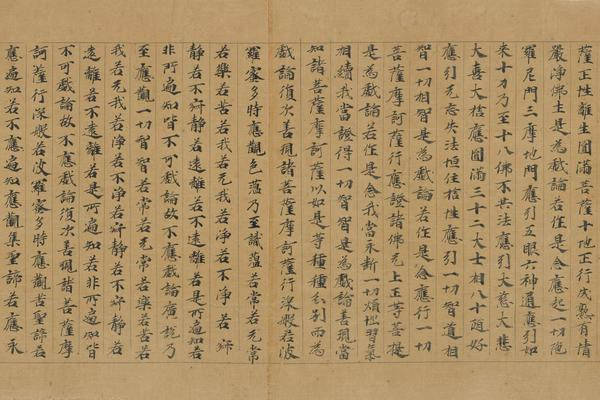 薩正性離生圓滿菩薩十地正行成熟有情
嚴淨佛土是為戲論若作是念應起一切陁
羅尼門三摩地門應引五眼六神通應引如
來十力乃至十八佛不共法應引大慈大悲
大喜大捨應圓滿三十二大士相八十隨好
應引无忘失法恒住捨性應引一切智道相
智一切相智是為戲論若作是念應行一切
菩薩摩訶薩行應證諸佛无上正等菩提
是為戲論若作是念我當永斷一切煩惱習氣
相續我當證得一切智智是為戲論善現當
知諸菩薩摩訶薩以如是等種種分別而為
戲論復次善現諸菩薩摩訶薩行深般若波
羅蜜多時應觀色蘊乃至識蘊若常若无常
若樂若苦若我若无我若淨若不淨若寂
靜若不寂靜若遠離若不遠離若是所遍知若
非所遍知皆不可戲論故不應戲論廣說乃
至應觀一切智智若常若无常若樂若苦若
我若无我若淨若不淨若寂靜若不寂靜若
遠離若不遠離若是所遍知若非所遍知皆
不可戲論故不應戲論復次善現諸菩薩摩
訶薩行深般若波羅蜜多時應觀苦聖諦若
應遍知若不應遍知應觀集聖諦若應永